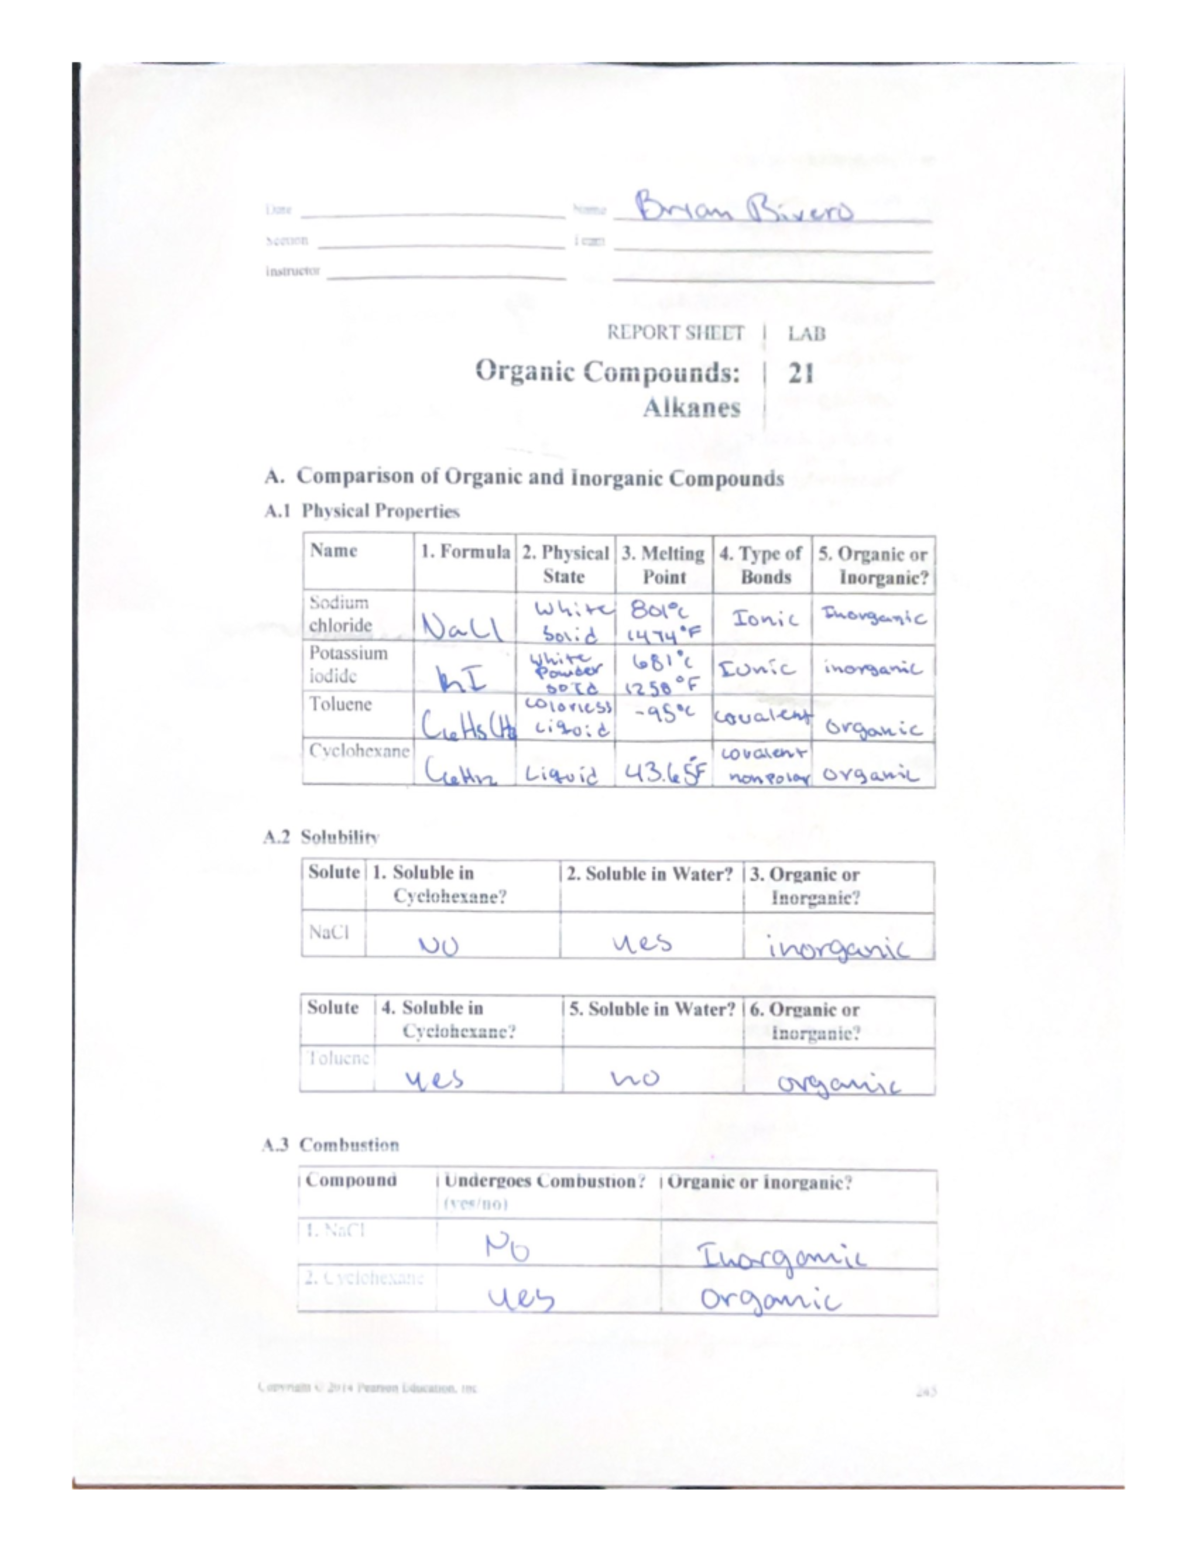 Date Name Brian Rivero
Section Team
Instructor
REPORT SHEET | LAB
Organic Compounds: 21
Alkanes
A. Comparison of Organic and Inorganic Compounds
A.1 Physical Properties
Name 1. Formula 2. Physical State 3. Melting Point 4. Type of Bonds 5. Organic or Inorganic?
Sodium chloride NaCl White Solid 801°C 1474°F Ionic Inorganic
Potassium iodide KI White Powder solid 681°C 1258°F Ionic inorganic
Toluene C6H5CH3 colorless Liquid -95°C covalent organic
Cyclohexane C6H12 Liquid 43.65°F covalent nonpolar organic
A.2 Solubility
Solute 1. Soluble in Cyclohexane? 2. Soluble in Water? 3. Organic or Inorganic?
NaCl NO yes inorganic
Solute 4. Soluble in Cyclohexane? 5. Soluble in Water? 6. Organic or Inorganic?
Toluene yes no organic
A.3 Combustion
Compound Undergoes Combustion? (yes/no) Organic or Inorganic?
1. NaCl No Inorganic
2. Cyclohexane yes Organic
Copyright © 2014 Pearson Education, Inc. 245